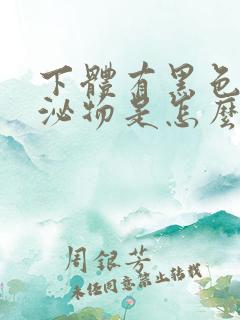 下體有黑色
泌物是怎麼
周銀芳
未经同意禁止转载